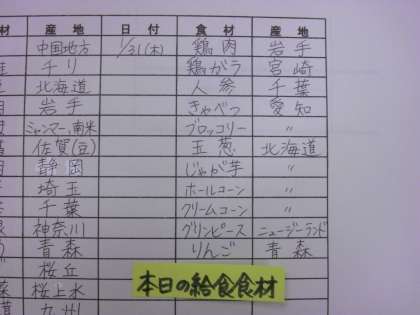 材 産地 日付 食材 産地
中国地方 1/31(木) 鶏肉 岩手
チリ 鶏がら 宮崎
北海道 人参 千葉
岩手 きゃべつ 愛知
ミャンマー、南米 ブロッコリー 〃
佐賀(豆) 玉葱 北海道
静岡 じゃが芋 〃
埼玉 ホールコーン 〃
千葉 クリームコーン 〃
神奈川 グリンピース ニュージーランド
青森 りんご 青森
桜丘
桜上水
九州
本日の給食食材